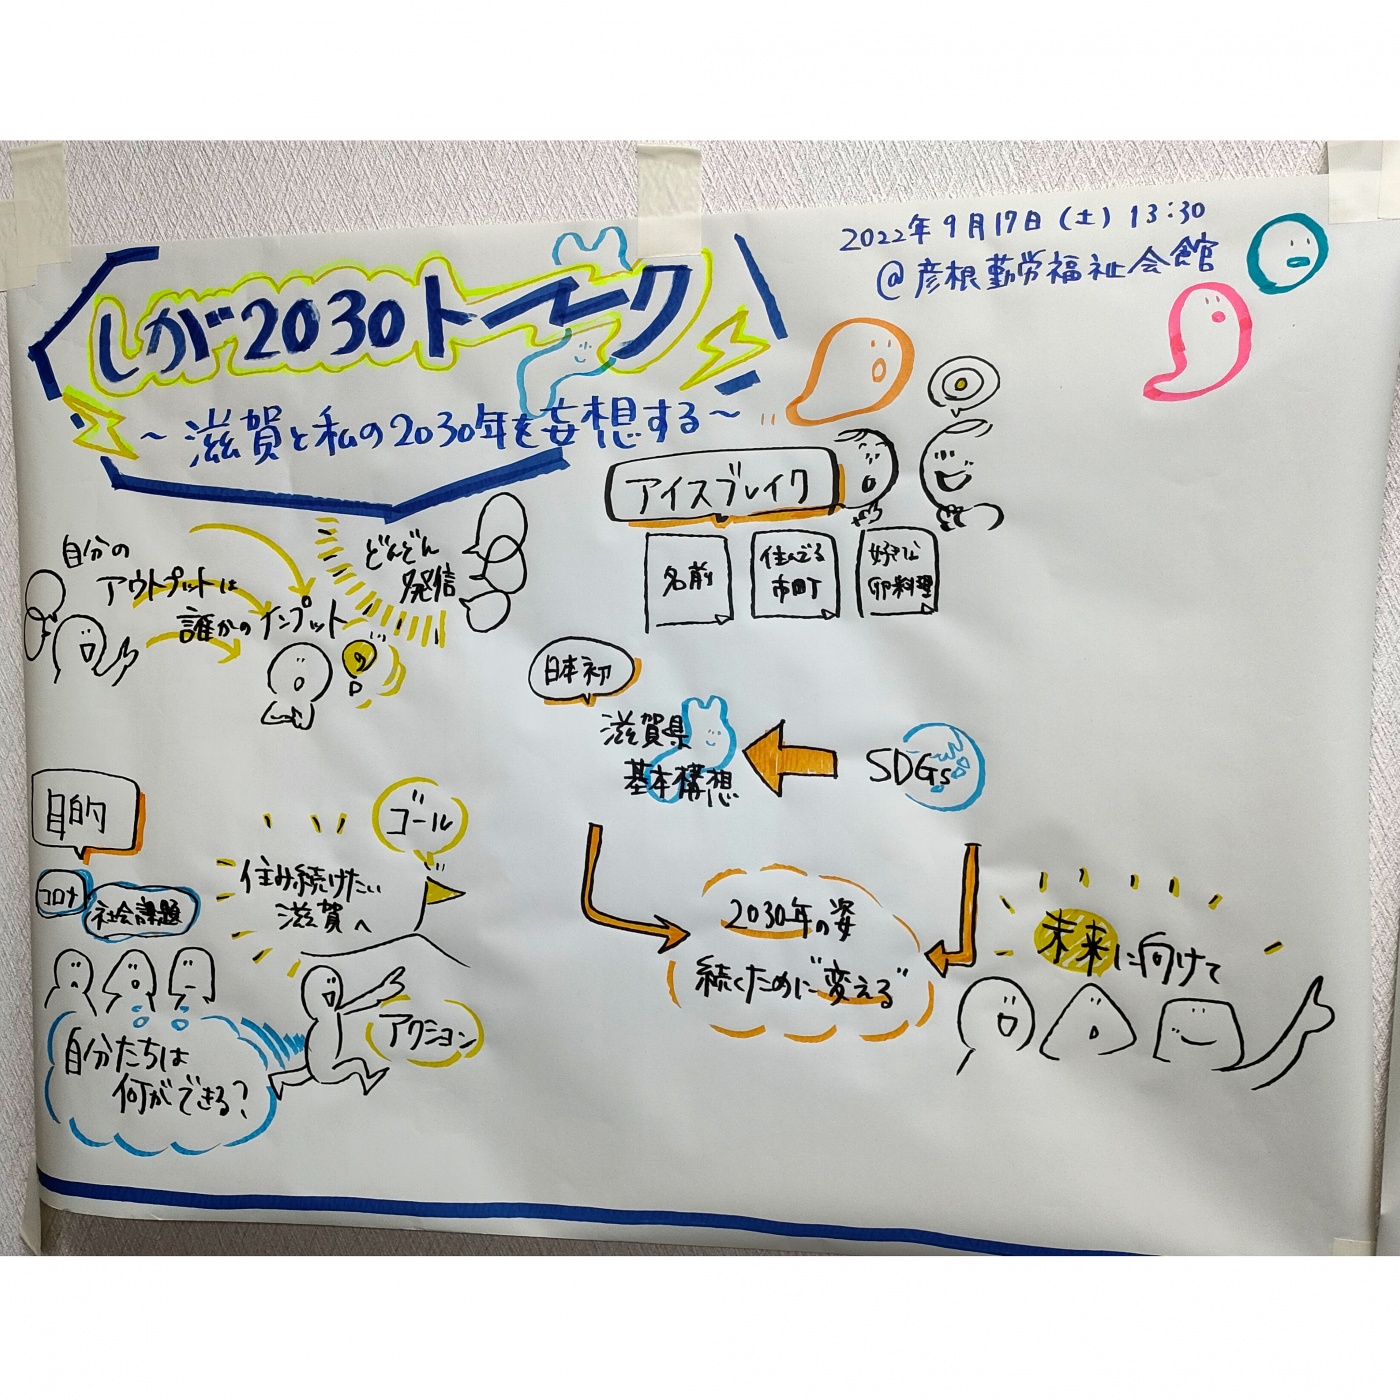 2022年9月17日(土) 13:30
@彦根勤労福祉会館
しが2030トーーク
~滋賀と私の2030年を妄想する~
自分の
アウトプットは
誰かのインプット
どんどん
発信
アイスブレイク
名前
住んでる
市町
好きな
卵料理
日本初
滋賀県
基本構想
SDGs
目的
コロナ
社会課題
自分たちは
何ができる?
住み続けたい
滋賀へ
ゴール
アクション
2030年の姿
続くために"変える"
未来に向けて